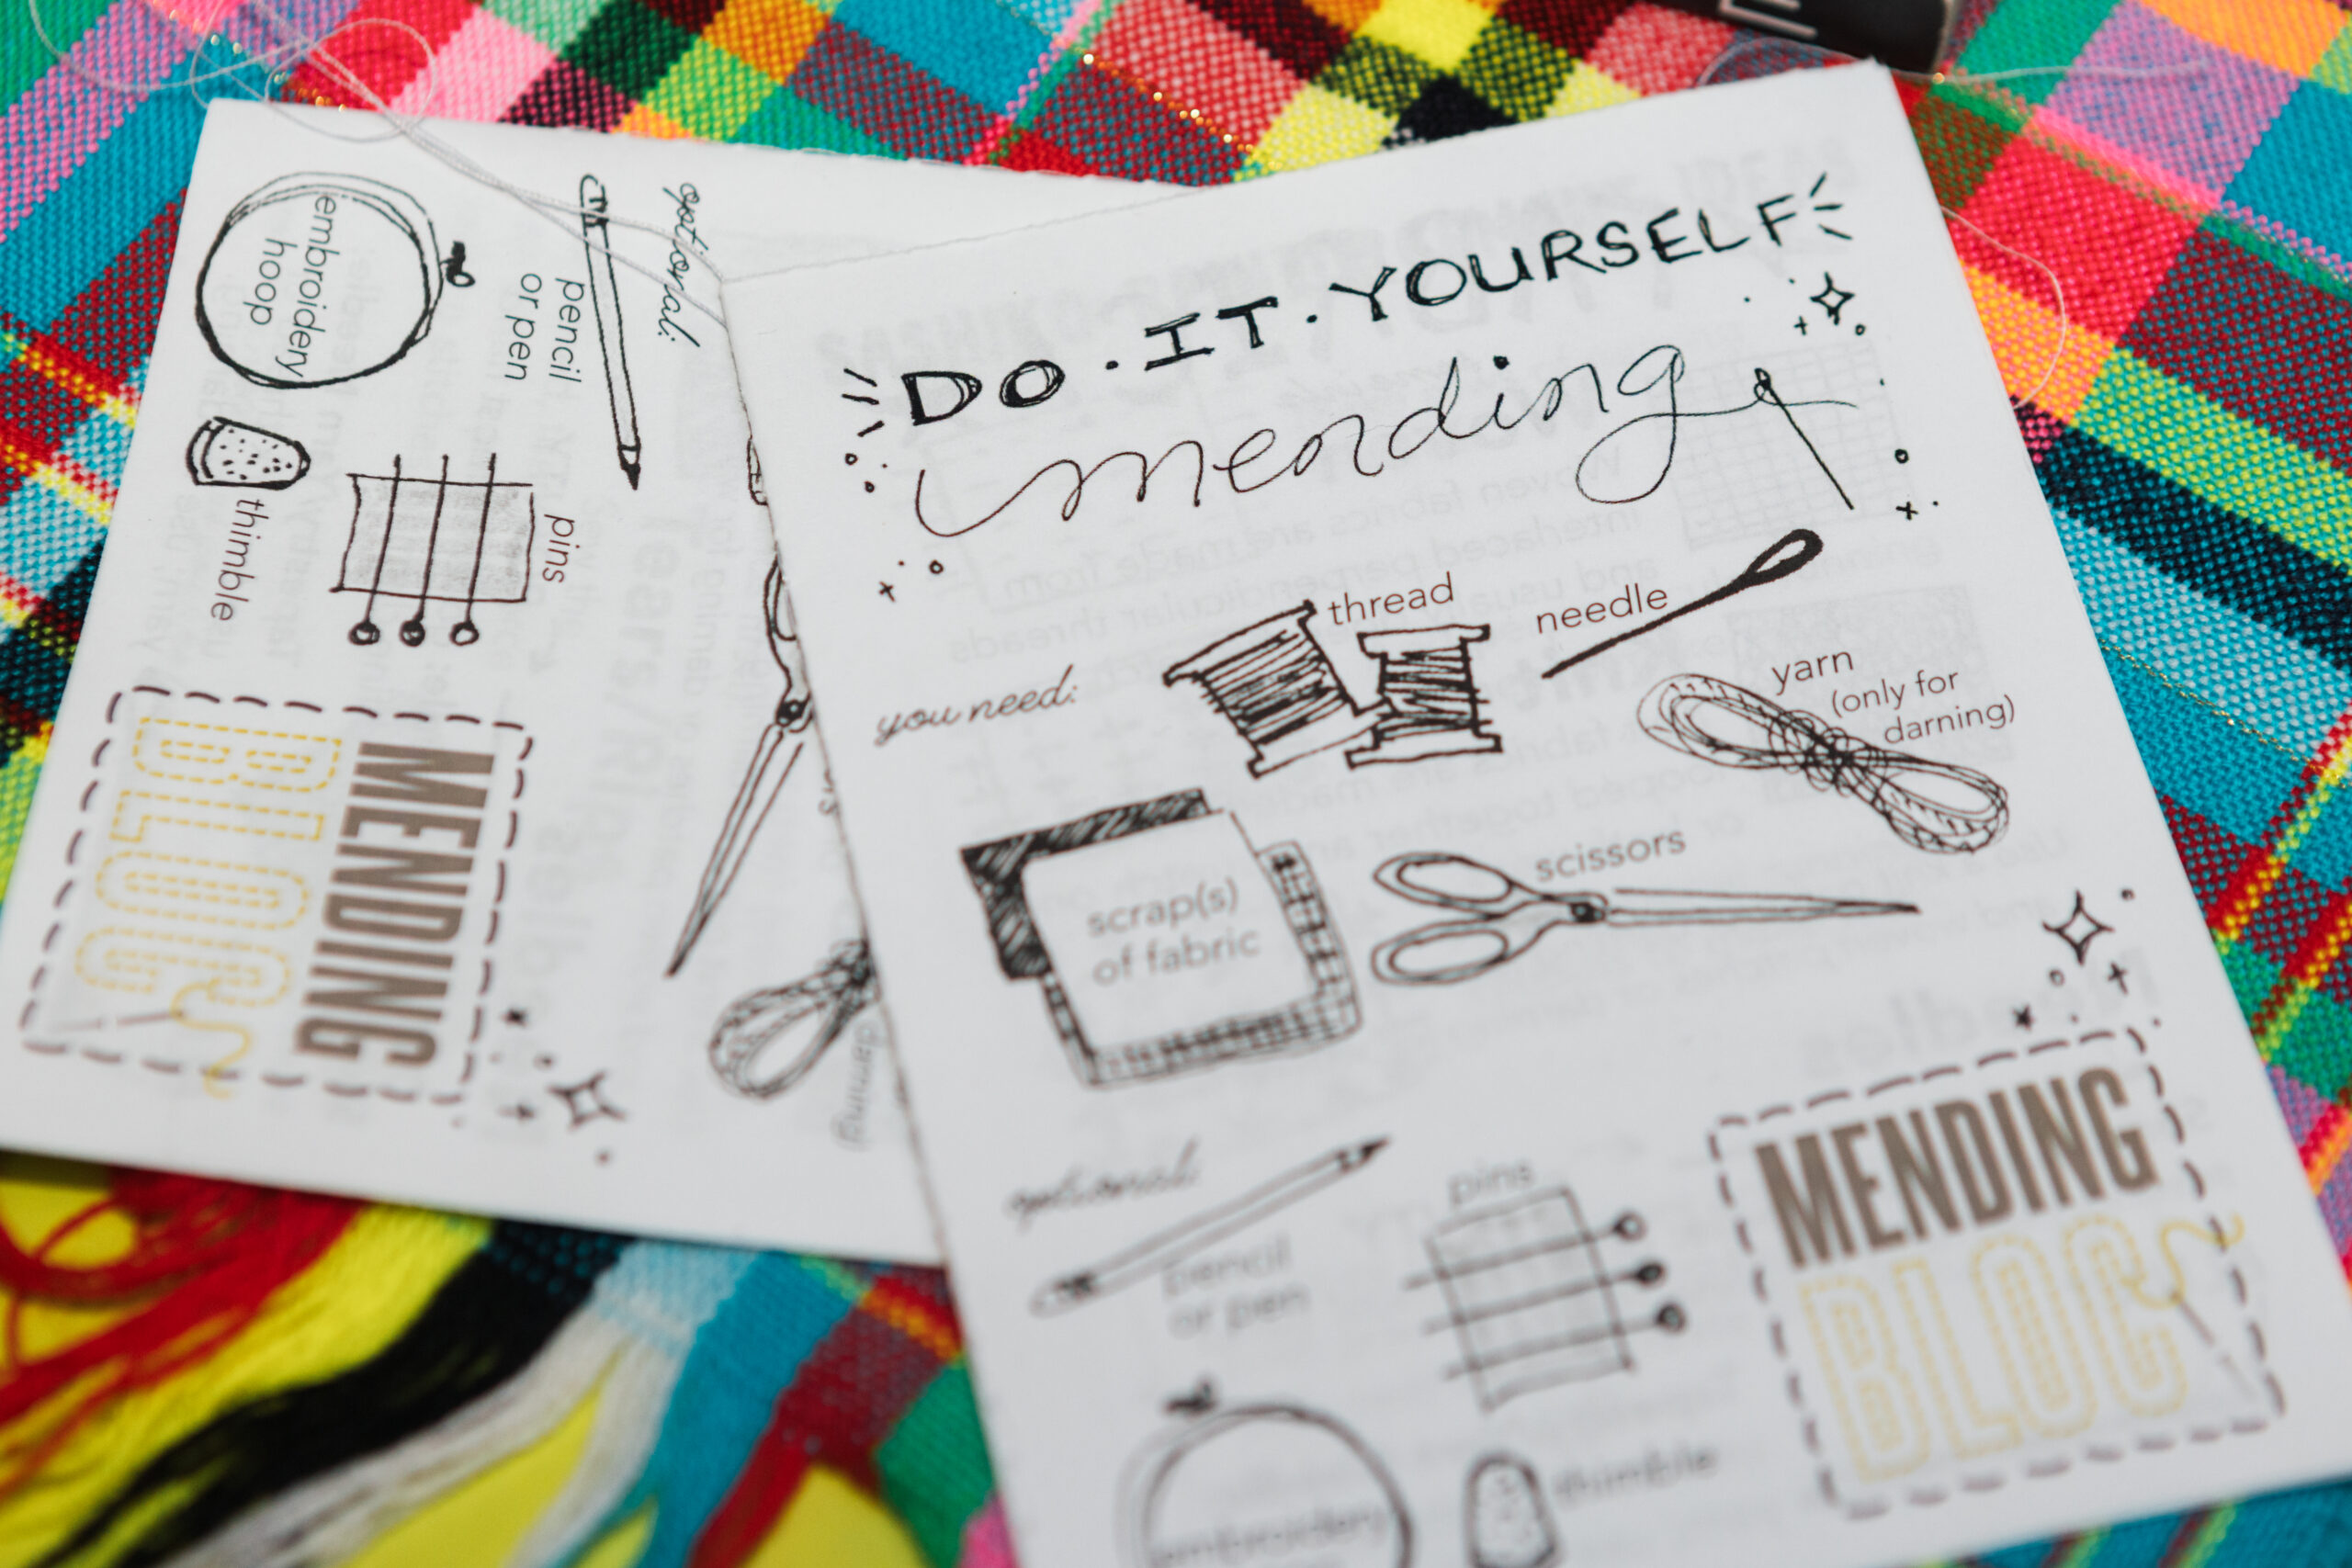 DO·IT·YOURSELF
mending
you need:
thread
needle
yarn
(only for
darning)
scrap(s)
of fabric
scissors
optional:
pencil
or pen
pins
embroidery
thimble
MENDING
BLOC
optional:
pencil
or pen
embroidery
hoop
pins
thimble
MENDING
BLOC
darning)